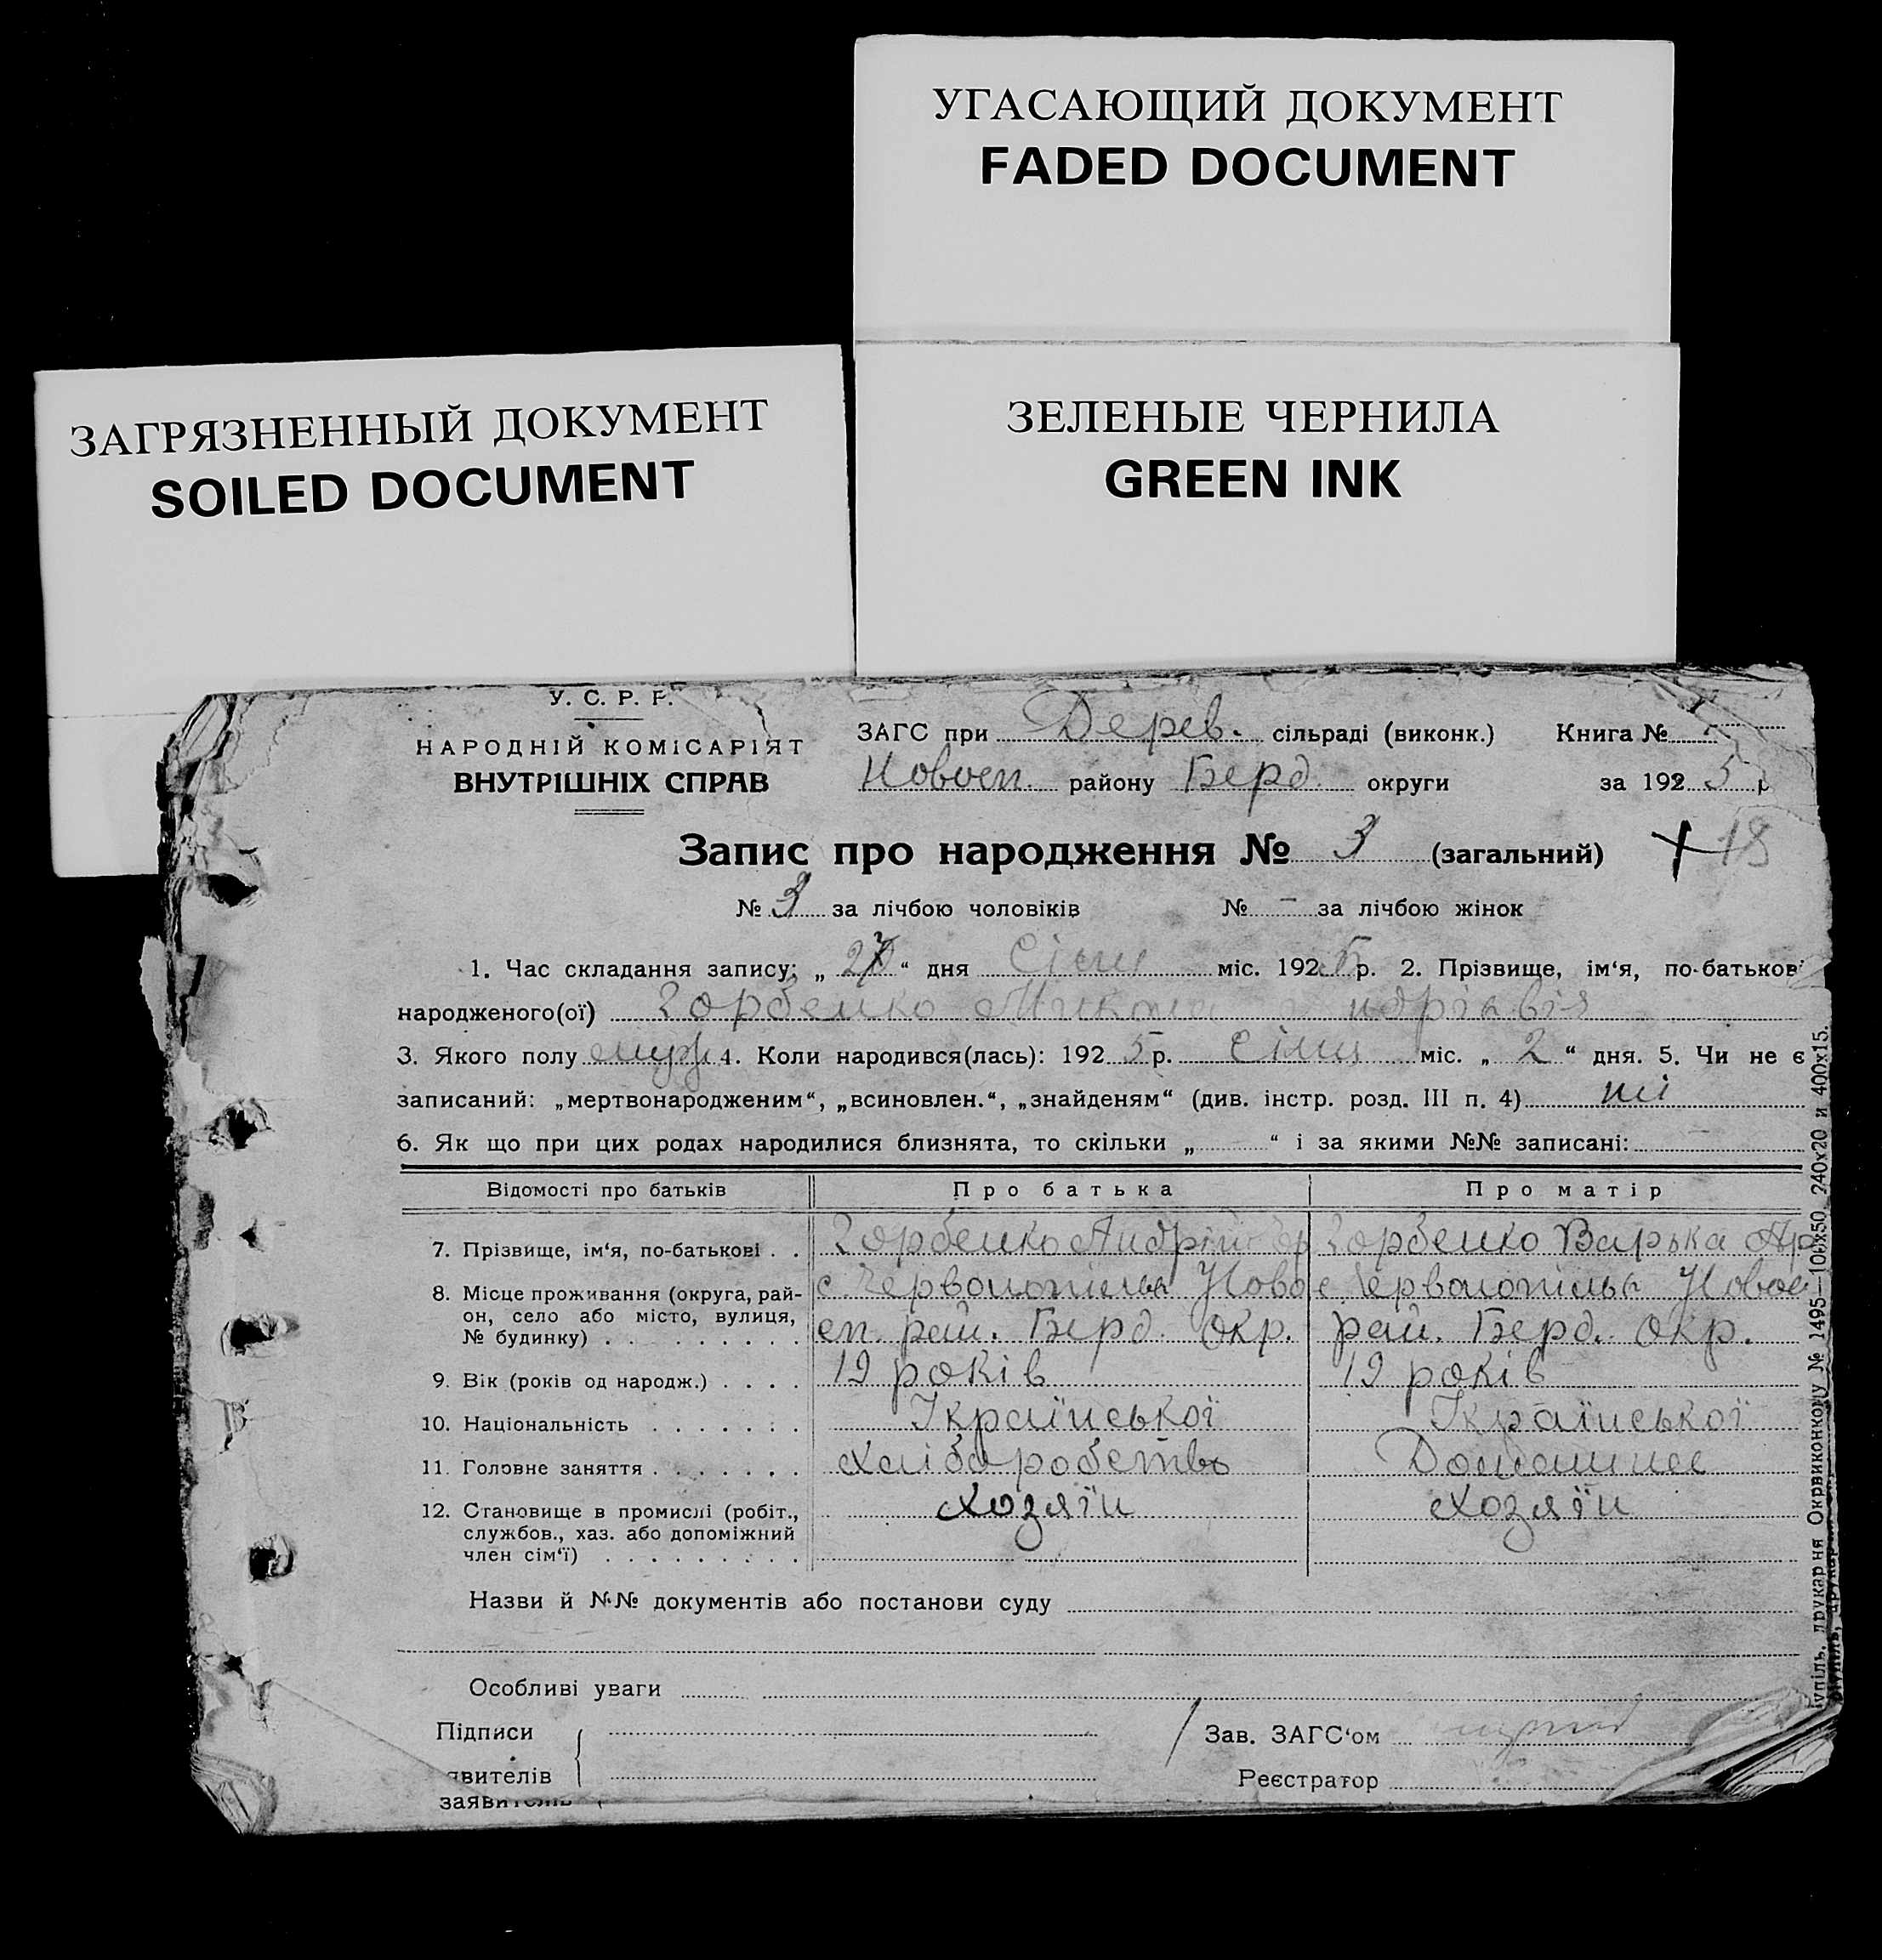 УГАСАЮЩИЙ ДОКУМЕНТ
FADED DOCUMENT
ЗАГРЯЗНЕННЫЙ ДОКУМЕНТ
SOILED DOCUMENT
ЗЕЛЕНЫЕ ЧЕРНИЛА
GREEN INK
У. С. Р. Р.
НАРОДНІЙ КОМІСАРІЯТ
ВНУТРІШНІХ СПРАВ
ЗАГС при Дерев. сільраді (виконк.) Книга №
Новосп. району Берд. округи за 1925 р
Запис про народження № 3 (загальний) 18
№ 3 за лічбою чоловіків № - за лічбою жінок
1. Час складання запису: „ “ дня Січня міс. 1925 р. 2. Прізвище, ім‘я, по-батькові
народженого(ої) Горбенко Микола
3. Якого полу муж 4. Коли народився(лась): 1925 р. Січня міс. „ 2 “ дня. 5. Чи не є
записаний: „мертвонародженим“, „всиновлен.“, „знайденям“ (див. інстр. розд. III п. 4) ні
6. Як що при цих родах народилися близнята, то скільки „ “ і за якими №№ записані:
Відомості про батьків Про батька Про матір
7. Прізвище, ім‘я, по-батькові . . Горбенко Андрій Горбенко Варька
8. Місце проживання (округа, рай- с Червонопілья Ново с Червонопілья Новос
он, село або місто, вулиця, сп. рай. Берд. Окр. рай. Берд. Окр.
№ будинку) . . . . . . . . .
9. Вік (років од народж.) . . . . 19 років 19 років
10. Національність . . . . . . . Української Української
11. Головне заняття . . . . . . . Хліборобство Домашнє
12. Становище в промислі (робіт., Хозяїн Хозяїн
службов., хаз. або допоміжний
член сім‘ї) . . . . . . . . .
Назви й №№ документів або постанови суду
Особливі уваги
Підписи Зав. ЗАГС‘ом
явителів Реєстратор
заявителів
упіль, друкарня Окрвиконкому № 1495—100х50, 240х20 и 400х15.